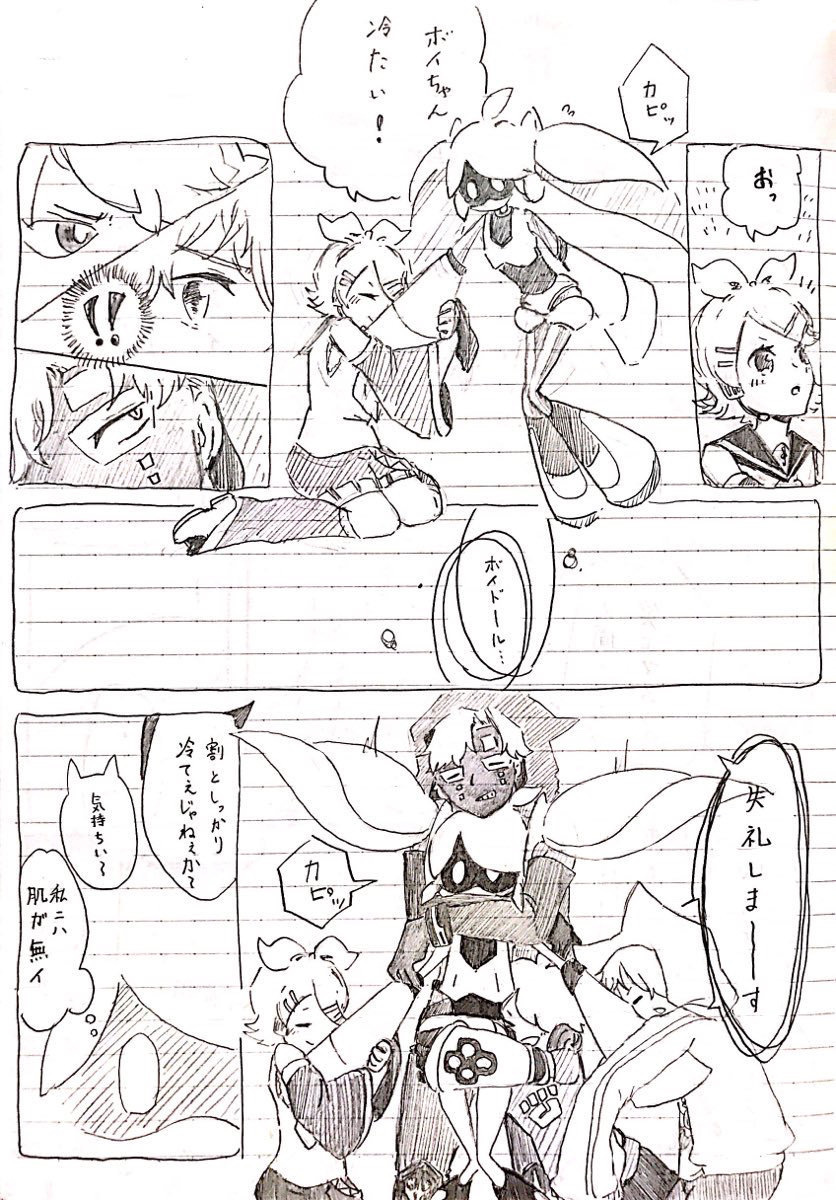 おっ
カピッ
ボイちゃん
冷たい!
!!
ボイドール…
失礼しま――す
カピッ
割としっかり
冷てぇじゃねぇか〜
気持ちい〜
私ニハ
肌が無イ